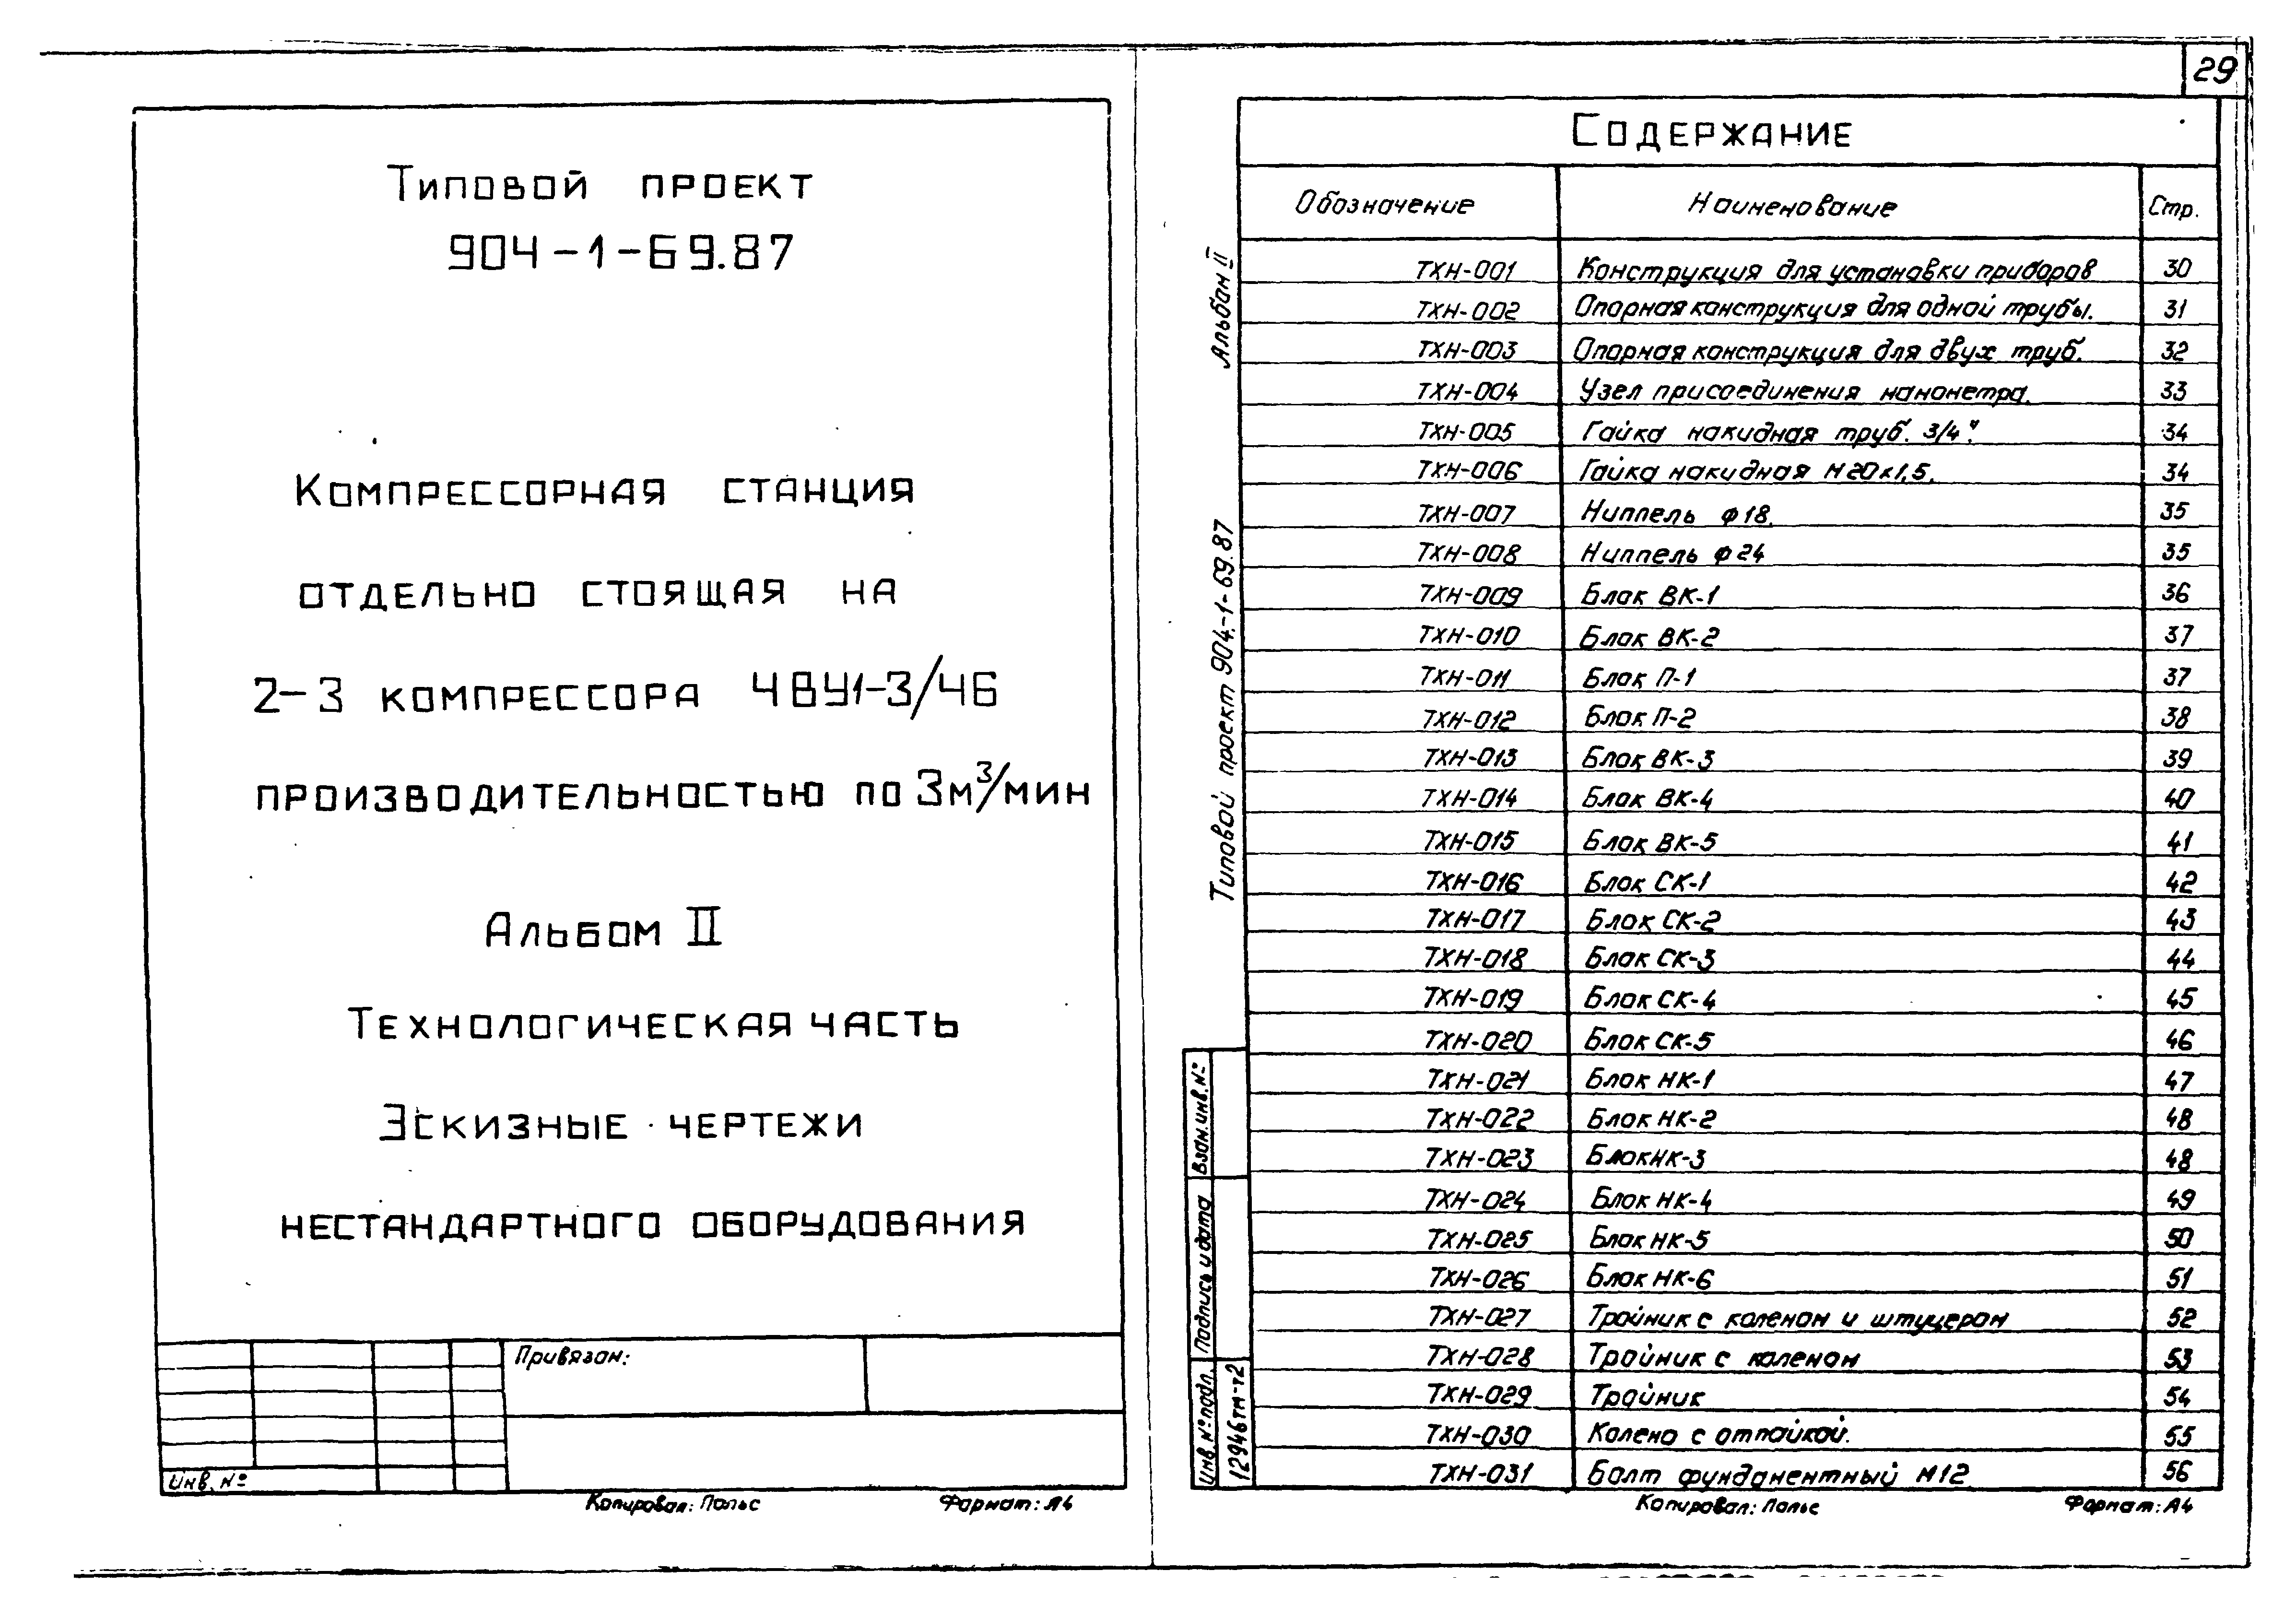 Типовой проект
904-1-69.87
Компрессорная станция
отдельно стоящая на
2-3 компрессора 4ВУ1-3/46
производительностью по 3м³/мин
Альбом II
Технологическая часть
Эскизные чертежи
нестандартного оборудования
Привязан:
Инв. №
Копировал: Польс Формат: А4
29
Альбом II
Типовой проект 904-1-69.87
Взам. инв. №
Подпись и дата
Инв № подл.
12946тм-т2
Содержание
Обозначение Наименование Стр.
ТХН-001 Конструкция для установки приборов 30
ТХН-002 Опорная конструкция для одной трубы. 31
ТХН-003 Опорная конструкция для двух труб. 32
ТХН-004 Узел присоединения манометра. 33
ТХН-005 Гайка накидная труб. 3/4". 34
ТХН-006 Гайка накидная М20х1,5. 34
ТХН-007 Ниппель ф18. 35
ТХН-008 Ниппель ф24 35
ТХН-009 Блок ВК-1 36
ТХН-010 Блок ВК-2 37
ТХН-011 Блок П-1 37
ТХН-012 Блок П-2 38
ТХН-013 Блок ВК-3 39
ТХН-014 Блок ВК-4 40
ТХН-015 Блок ВК-5 41
ТХН-016 Блок СК-1 42
ТХН-017 Блок СК-2 43
ТХН-018 Блок СК-3 44
ТХН-019 Блок СК-4 45
ТХН-020 Блок СК-5 46
ТХН-021 Блок НК-1 47
ТХН-022 Блок НК-2 48
ТХН-023 Блок НК-3 48
ТХН-024 Блок НК-4 49
ТХН-025 Блок НК-5 50
ТХН-026 Блок НК-6 51
ТХН-027 Тройник с коленом и штуцером 52
ТХН-028 Тройник с коленом 53
ТХН-029 Тройник 54
ТХН-030 Колено с отпайкой. 55
ТХН-031 Болт фундаментный М12 56
Копировал: Польс Формат: А4